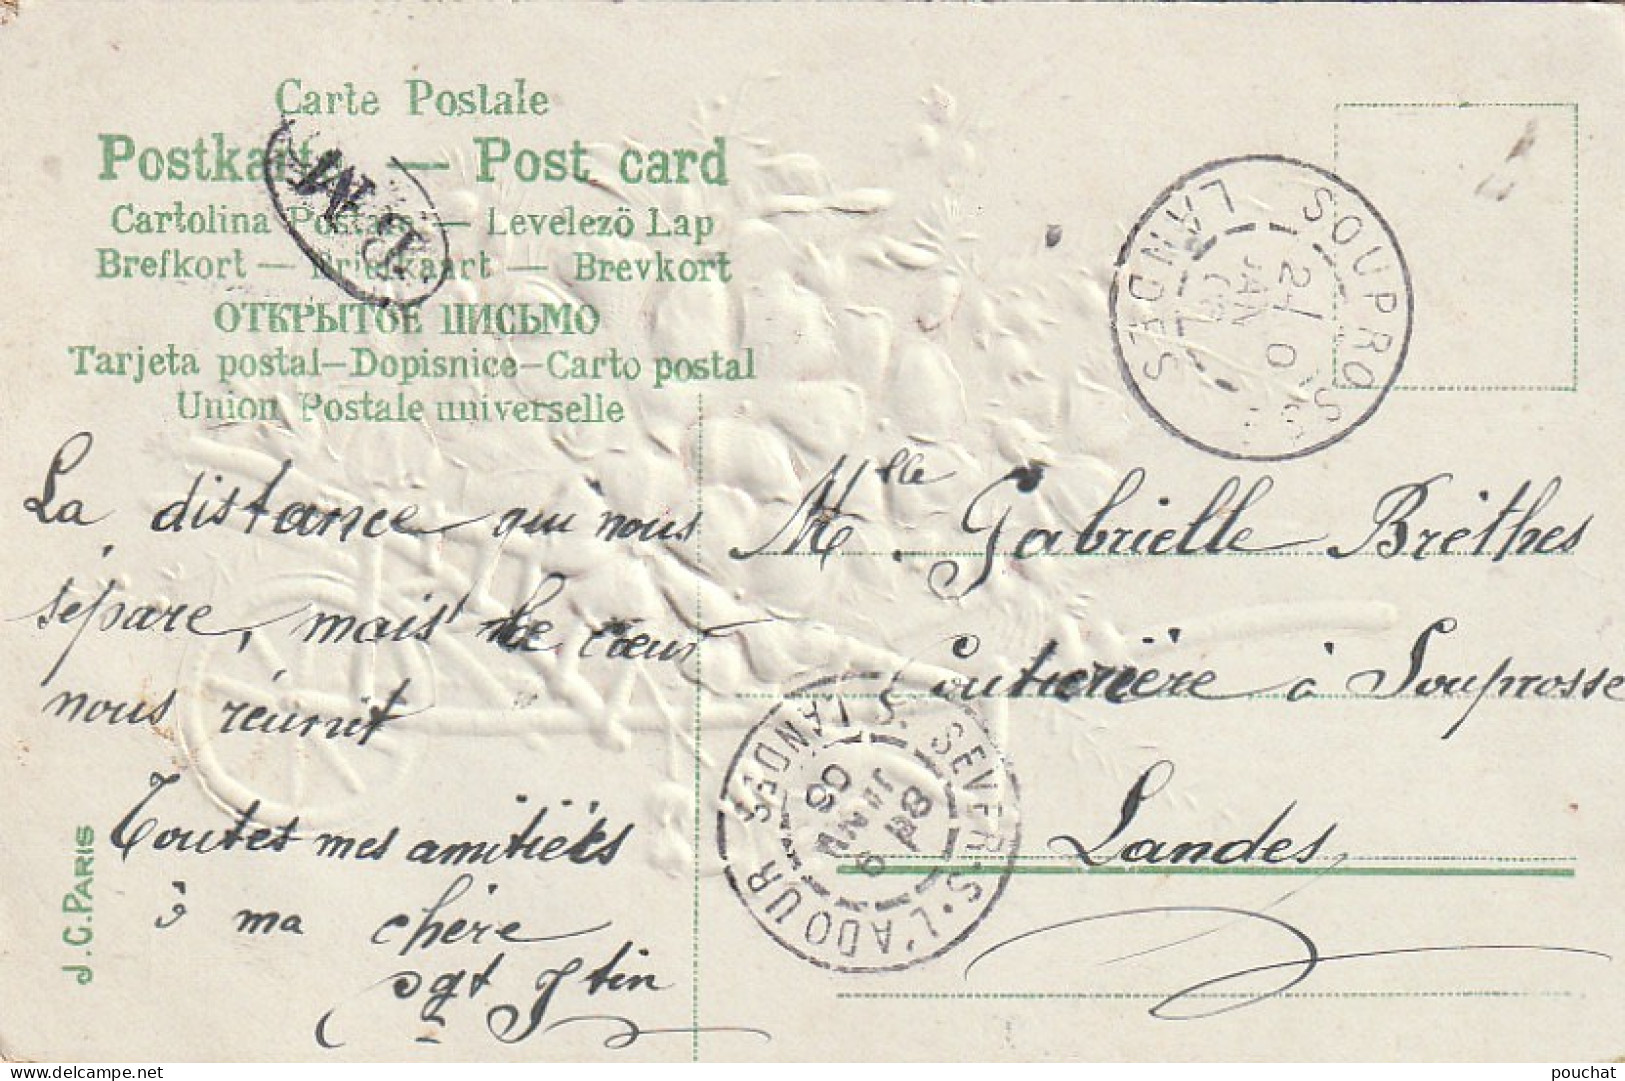 Carte Postale
Postkarte — Post card
Cartolina Postale — Levelezö Lap
Brefkort — Briefkaart — Brevkort
ОТКРЫТОЕ ПИСЬМО
Tarjeta postal—Dopisnice—Carto postal
Union Postale universelle
BM
SOUPROSSE
LANDES
2/ 0
JAN
06
La distance qui nous
sépare, mais le cœur
nous réunit
Toutes mes amitiés
à ma chère
sgt J tin
Mlle. Gabrielle Brèthes
Couturière à Souprosse
Landes
S. SEVER-S-L'ADOUR
LANDES
8
9
JANV
06
J.C. PARIS
pouchat